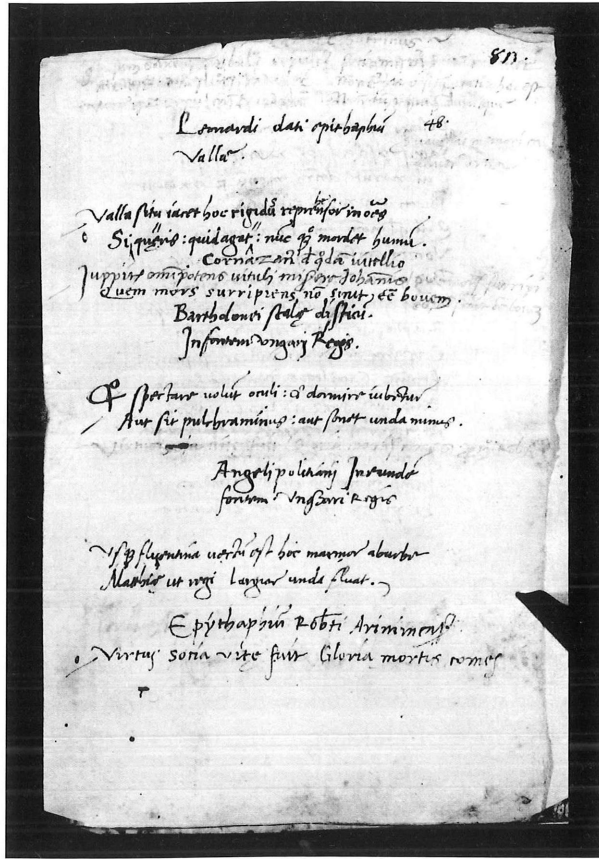 813.
Leonardi dati epithaphiū 48.
Vallæ.
Valla situ iacet hoc rigidꝰ reprehensor in oēs
Si queris: quid agat: nūc qꝫ mordet humū.
Cornazani d̄ qdā vitellio
Iuppiter omīpotens vituli Iohannis
Quem mors surripiens nō sinit eē bovem.
Bartholomei scalę distici.
In fontem Ungari Regis.
spectare volūt oculi: dormire iubetur
Aut sit pulchra minus: aut sonet unda minus.
Angeli politiani In eundē
fontem Ungari Regis
Vsqꝫ fluentina vectū est hoc marmor ab urbe
Matthię ut regi largior unda fluat.
Epythaphiū Robti Ariminensis
Virtus sotia vitę fuit Gloria mortis comes